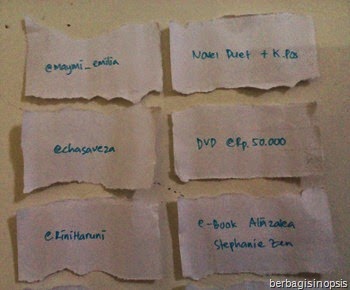 @maymi_emilia
Novel Duet + K.Pos
@chasaveza
DVD @Rp. 50.000
@RiniHaruni
e-Book Alinzalea
Stephanie Zen
berbagisinopsis